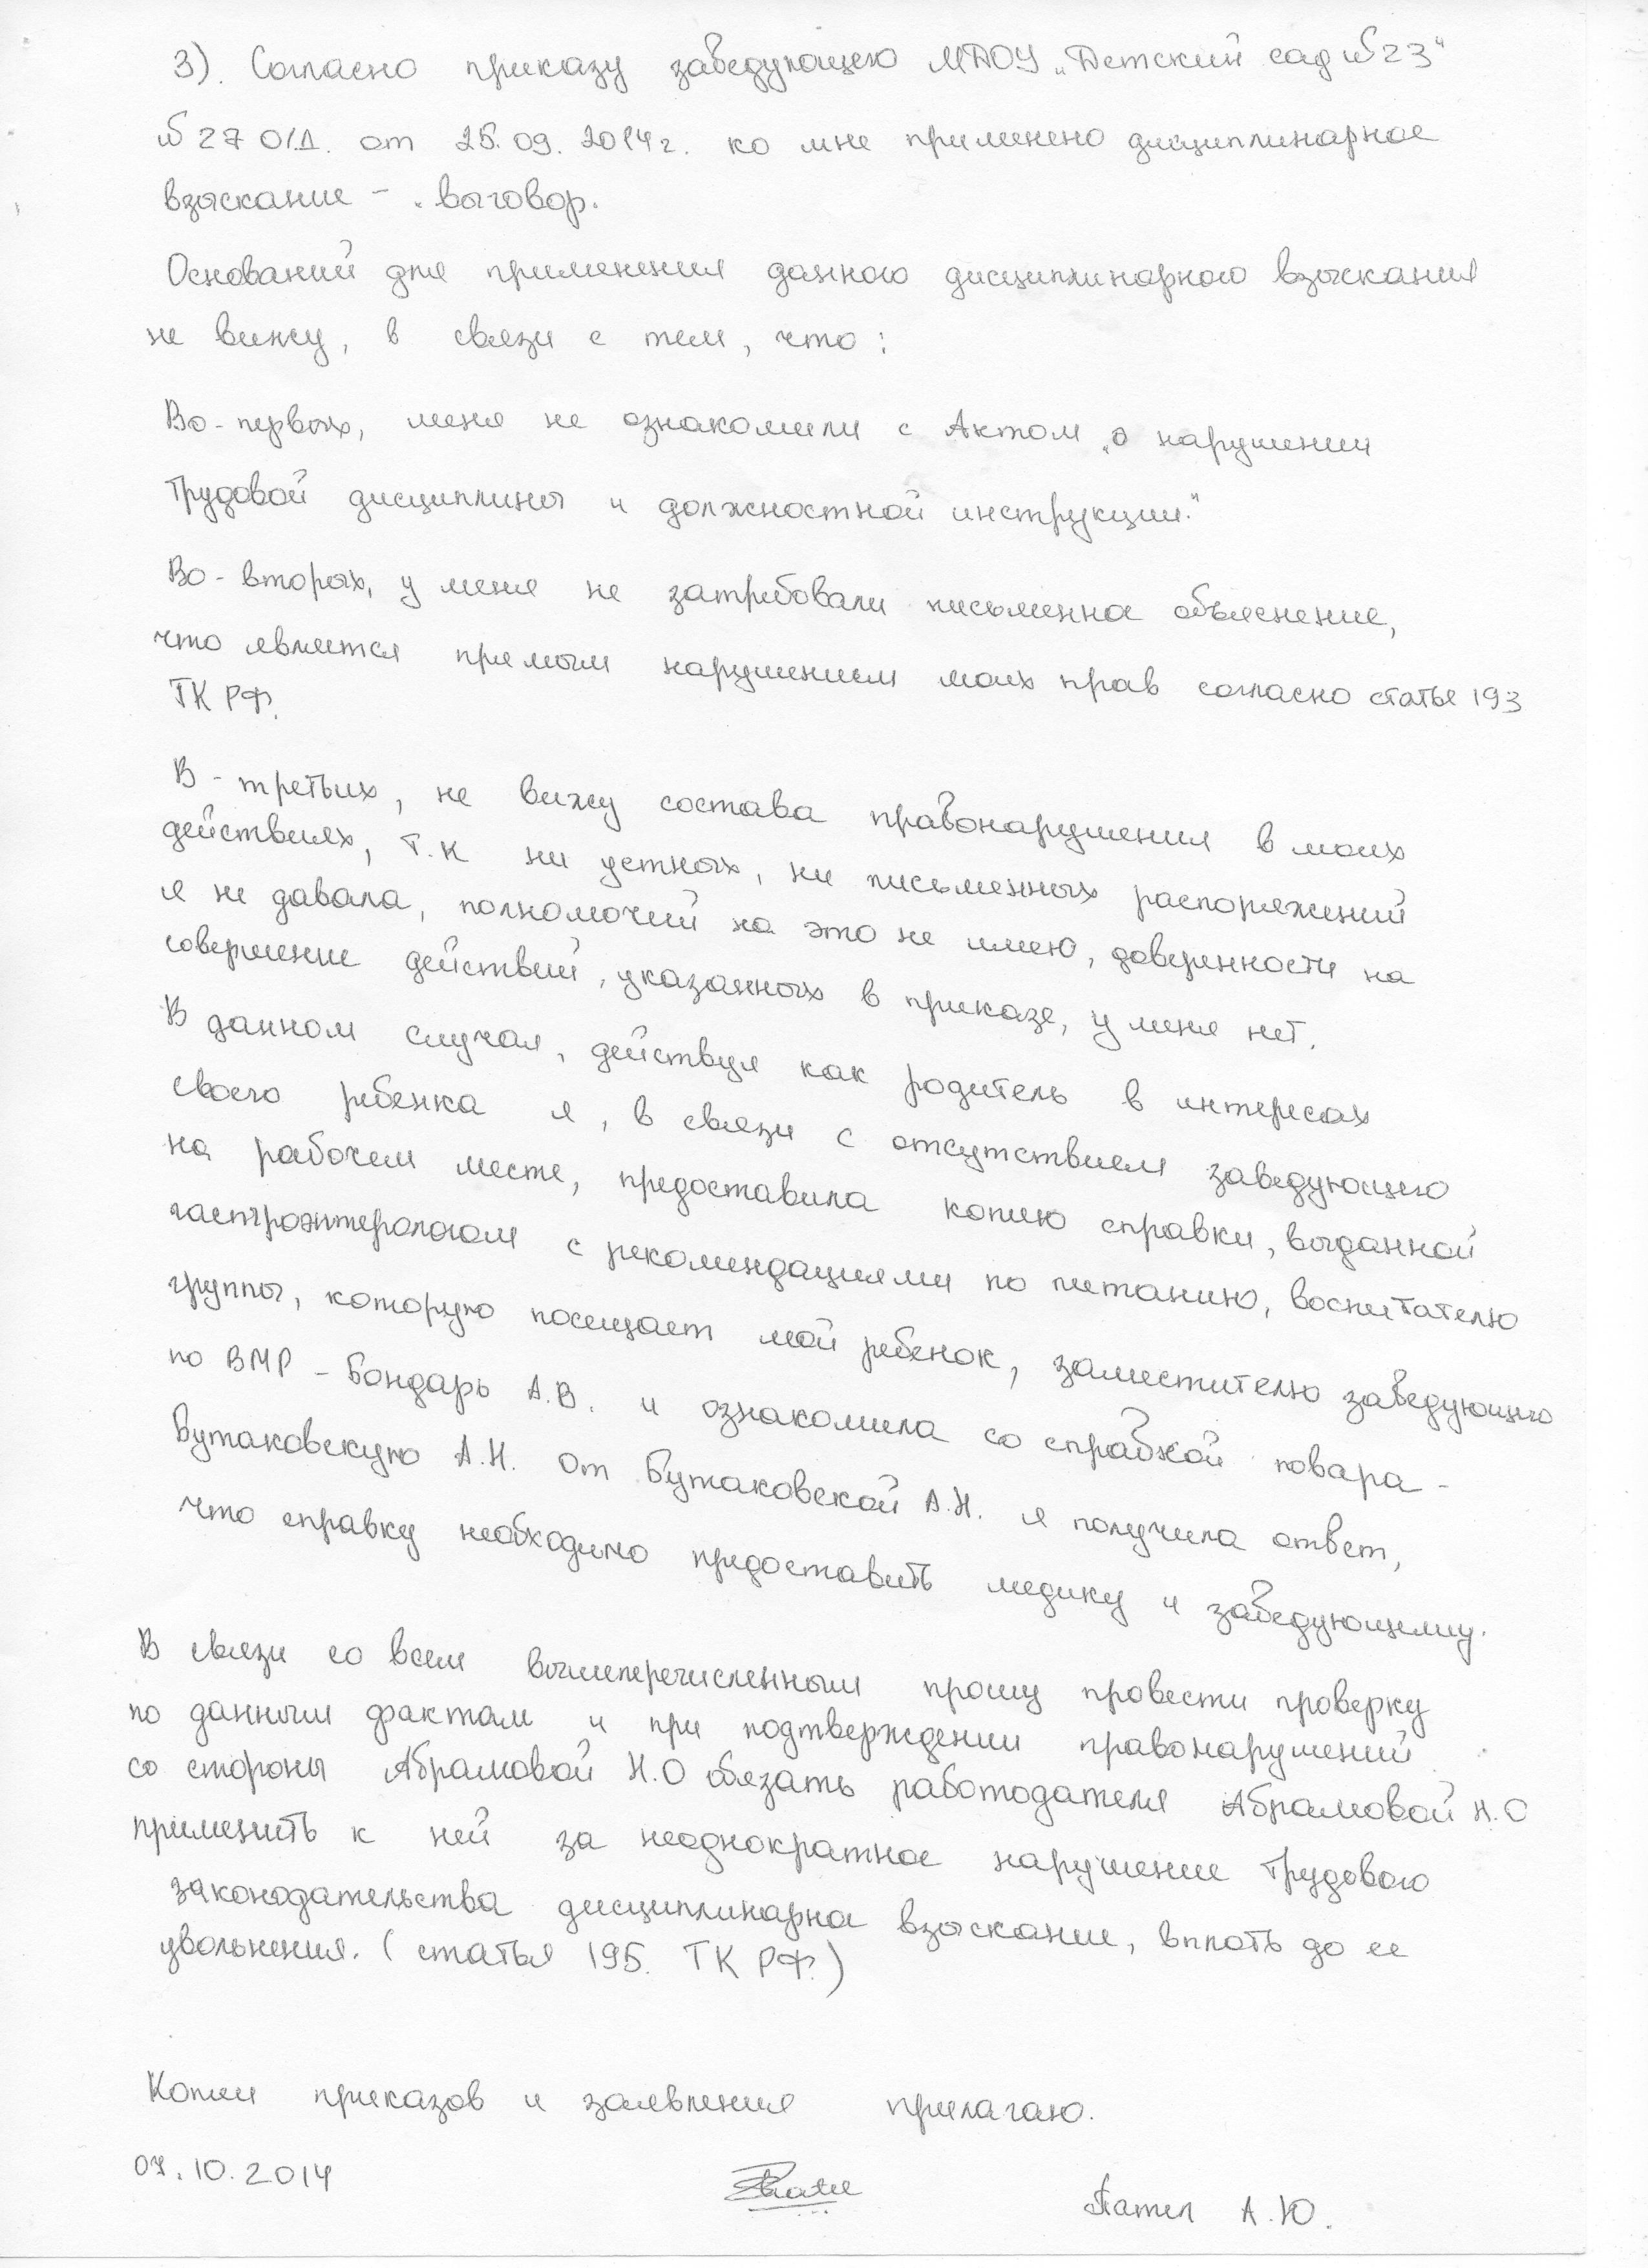 3). Согласно приказу заведующего МДОУ „Детский сад №23"
№ 27 О/Д. от 25.09.2014г. ко мне применено дисциплинарное
взыскание - выговор.
Оснований для применения данного дисциплинарного взыскания
не вижу, в связи с тем, что:
Во-первых, меня не ознакомили с Актом „о нарушении
трудовой дисциплины и должностной инструкции."
Во-вторых, у меня не затребовали письменное объяснение,
что является прямым нарушением моих прав согласно статье 193
ТК РФ.
В-третьих, не вижу состава правонарушения в моих
действиях, т.к ни устных, ни письменных распоряжений
я не давала, полномочий на это не имею, доверенности на
совершение действий, указанных в приказе, у меня нет.
В данном случае, действуя как родитель в интересах
своего ребенка я, в связи с отсутствием заведующего
на рабочем месте, предоставила копию справки, выданной
гастроэнтерологом с рекомендациями по питанию, воспитателю
группы, которую посещает мой ребенок, заместителю заведующего
по ВМР - Бондарь А.В. и ознакомила со справкой повара -
Бутаковскую А.Н. От Бутаковской А.Н. я получила ответ,
что справку необходимо предоставить медику и заведующему.
В связи со всем вышеперечисленным прошу провести проверку
по данным фактам и при подтверждении правонарушений
со стороны Абрамовой Н.О обязать работодателя Абрамовой Н.О
применить к ней за неоднократное нарушение трудового
законодательства дисциплинарное взыскание, вплоть до ее
увольнения. (статья 195. ТК РФ.)
Копии приказов и заявления прилагаю.
07.10.2014
Пател А.Ю.